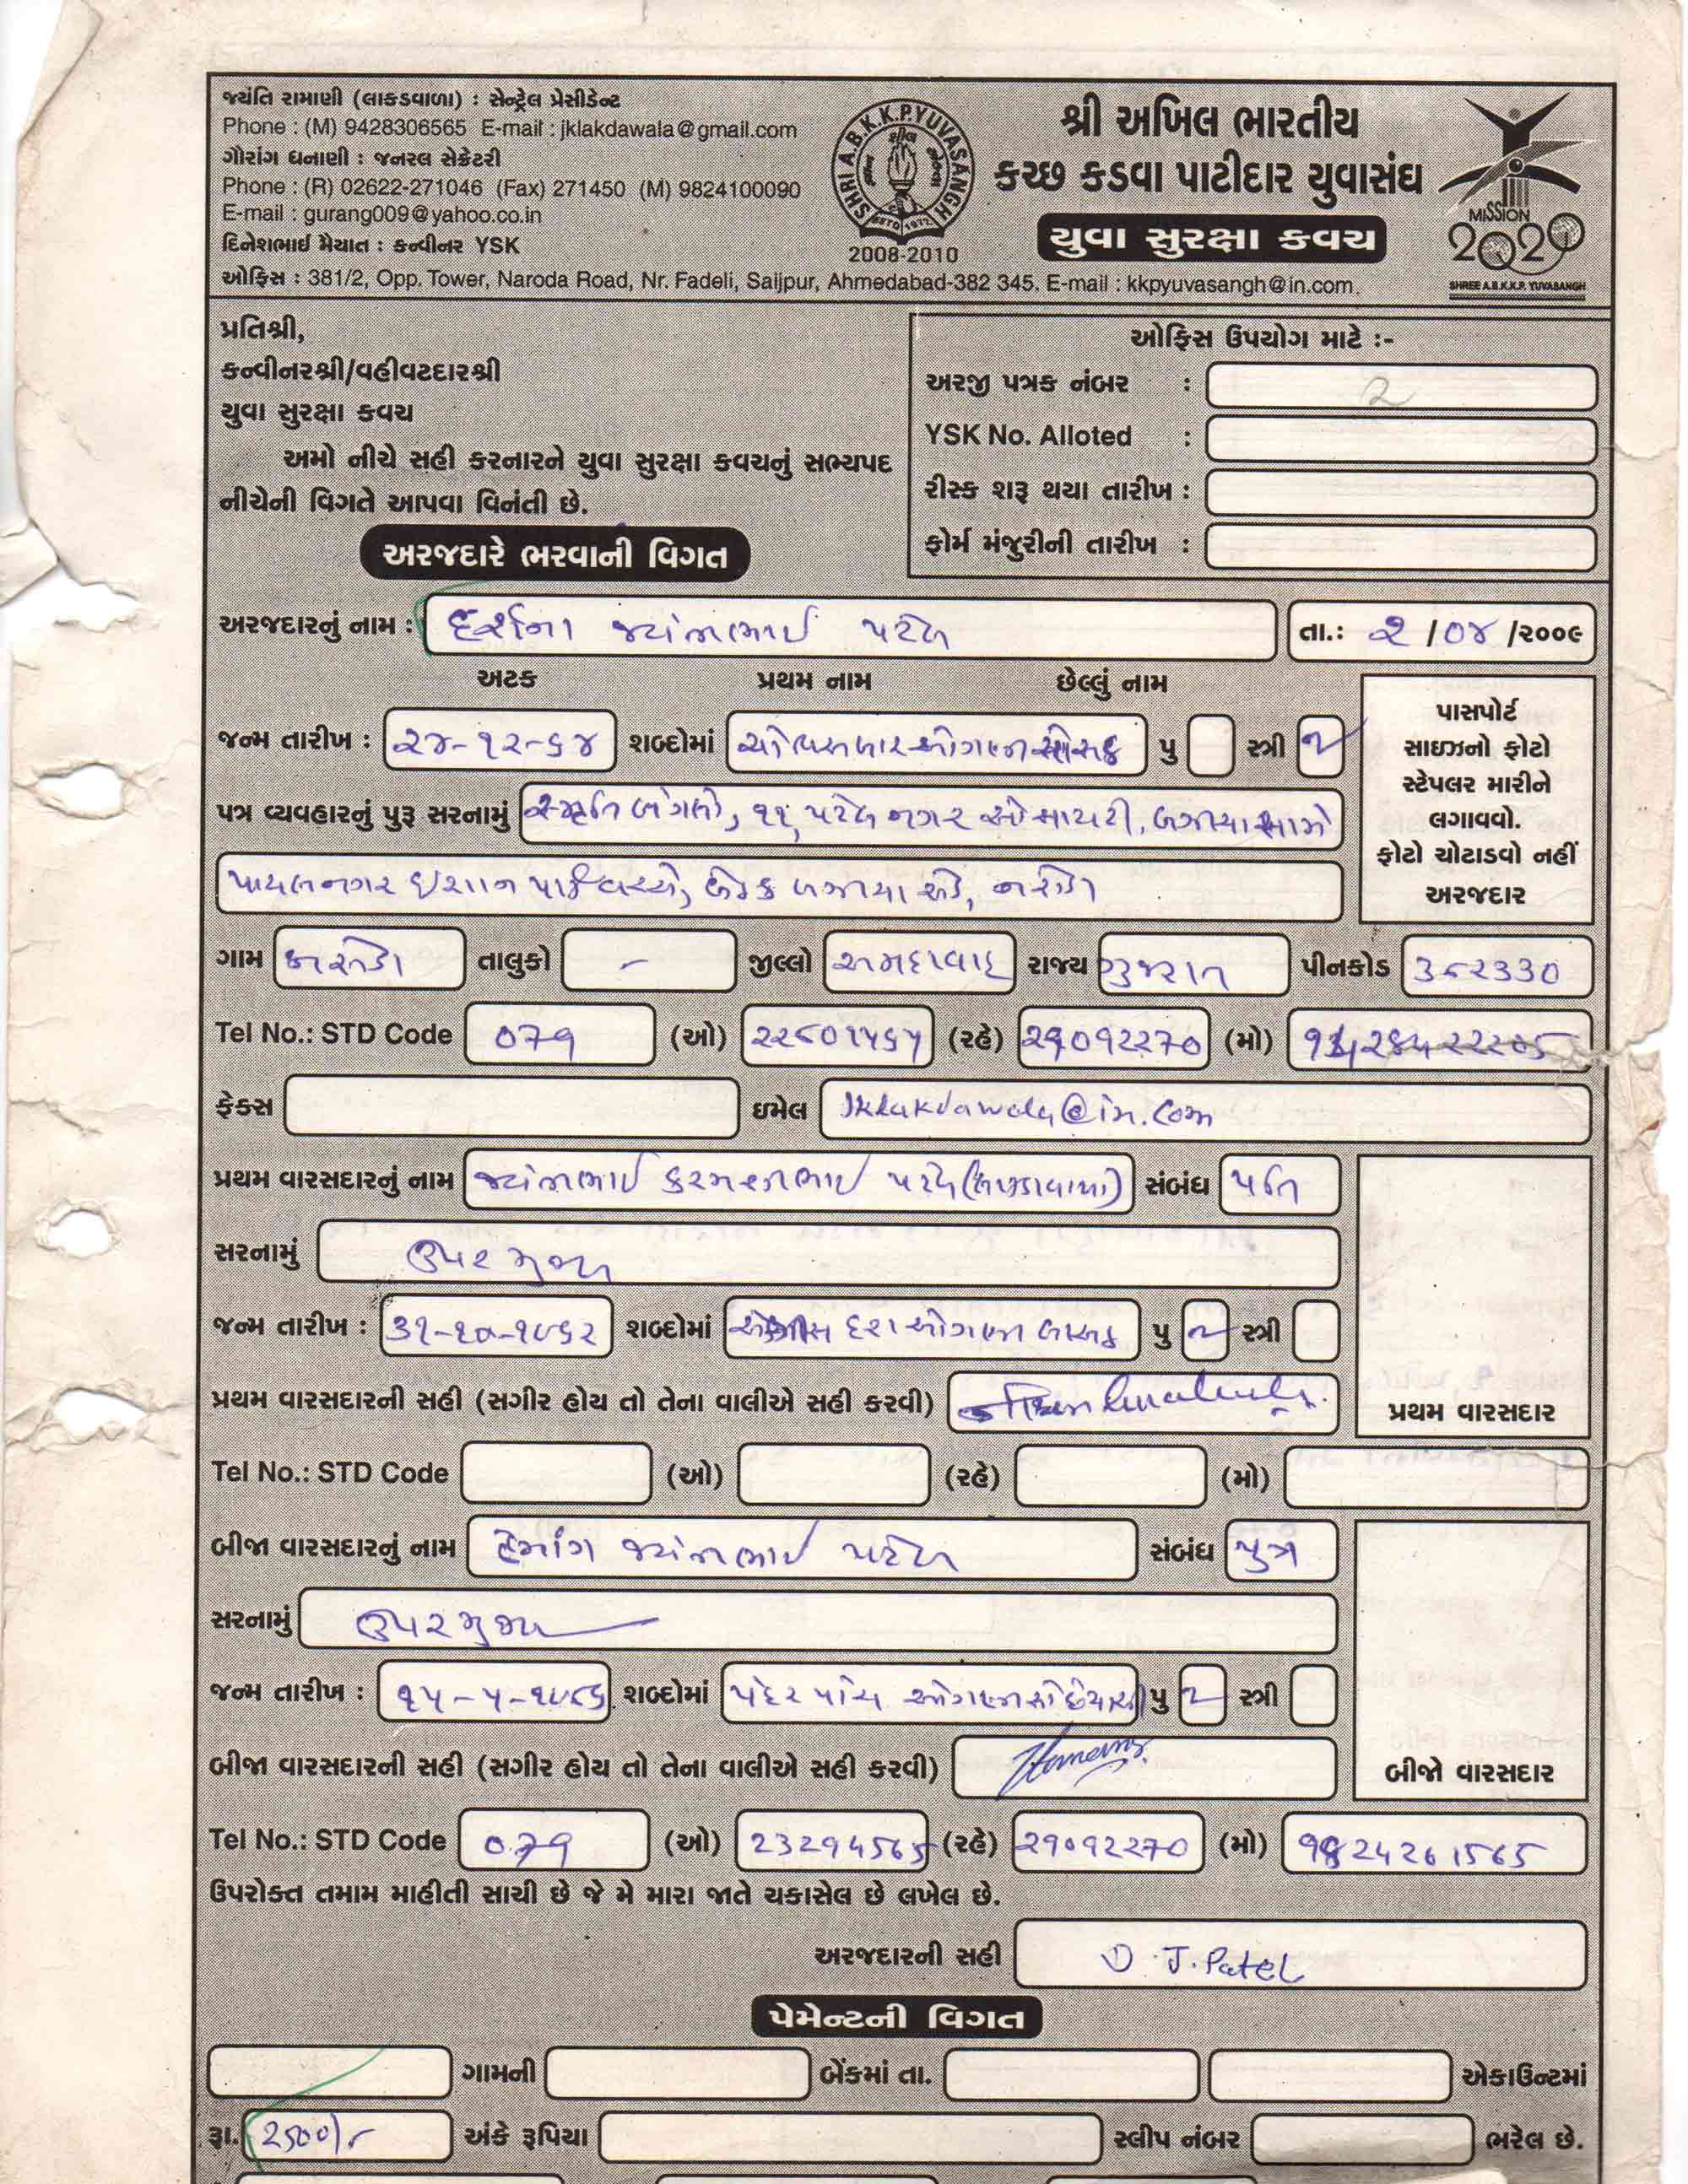 જ્યંતિ રામાણી (લાકડવાળા) : સેન્ટ્રેલ પ્રેસીડેન્ટ
Phone : (M) 9428306565 E-mail : jklakdawala@gmail.com
ગૌરાંગ ધનાણી : જનરલ સેક્રેટરી
Phone : (R) 02622-271046 (Fax) 271450 (M) 9824100090
E-mail : gurang009@yahoo.co.in
દિનેશભાઈ મૈયાત : કન્વીનર YSK
SHRI A.B.K.K.P.YUVASANGH
ESTD 1972
2008-2010
શ્રી અખિલ ભારતીય
કચ્છ કડવા પાટીદાર યુવાસંઘ
યુવા સુરક્ષા કવચ
MISSION
2020
SHREE A.B.K.K.P. YUVASANGH
ઓફિસ : 381/2, Opp. Tower, Naroda Road, Nr. Fadeli, Saijpur, Ahmedabad-382 345. E-mail : kkpyuvasangh@in.com.
પ્રતિશ્રી,
કન્વીનરશ્રી/વહીવટદારશ્રી
યુવા સુરક્ષા કવચ
અમો નીચે સહી કરનારને યુવા સુરક્ષા કવચનું સભ્યપદ
નીચેની વિગતે આપવા વિનંતી છે.
ઓફિસ ઉપયોગ માટે :-
અરજી પત્રક નંબર : 2
YSK No. Alloted :
રીસ્ક શરૂ થયા તારીખ :
ફોર્મ મંજુરીની તારીખ :
અરજદારે ભરવાની વિગત
અરજદારનું નામ : દર્શના જયંતિભાઈ પટેલ તા.: ૨ /૦૪ /૨૦૦૯
અટક પ્રથમ નામ છેલ્લું નામ
જન્મ તારીખ : ૨૪-૧૨-૬૪ શબ્દોમાં ચોવીસ બાર ઓગણીસ ચોસઠ પુ સ્ત્રી
પાસપોર્ટ
સાઇઝનો ફોટો
સ્ટેપલર મારીને
લગાવવો.
ફોટો ચોટાડવો નહીં
અરજદાર
પત્ર વ્યવહારનું પુરૂ સરનામું સ્મૃતિ બંગલો, ૧૧, પટેલ નગર સોસાયટી, બગીચા સામે
પાયલનગર ઇશાન પાર્ક વચ્ચે, નરોડા
ગામ નરોડા તાલુકો - જીલ્લો અમદાવાદ રાજ્ય ગુજરાત પીનકોડ ૩૮૨૩૩૦
Tel No.: STD Code ૦૭૯ (ઓ) ૨૨૮૦૧૫૬૫ (રહે) ૨૯૦૧૨૨૭૦ (મો)
ફેક્સ ઇમેલ Jklakdawala@in.com
પ્રથમ વારસદારનું નામ જયંતિભાઈ કરમશીભાઈ પટેલ (લાકડાવાળા) સંબંધ પતિ
સરનામું ઉપર મુજબ
જન્મ તારીખ : ૩૧-૧૦-૧૯૬૨ શબ્દોમાં એકત્રીસ દશ ઓગણીસ બાસઠ પુ સ્ત્રી
પ્રથમ વારસદારની સહી (સગીર હોય તો તેના વાલીએ સહી કરવી)
પ્રથમ વારસદાર
Tel No.: STD Code (ઓ) (રહે) (મો)
બીજા વારસદારનું નામ હેમાંગ જયંતિભાઈ પટેલ સંબંધ પુત્ર
સરનામું ઉપર મુજબ
જન્મ તારીખ : ૧૫-૫-૧૯૮૬ શબ્દોમાં પંદર પાંચ ઓગણીસો છયાસી પુ સ્ત્રી
બીજા વારસદારની સહી (સગીર હોય તો તેના વાલીએ સહી કરવી) Hemang
બીજો વારસદાર
Tel No.: STD Code ૦૭૯ (ઓ) 23294565 (રહે) ૨૯૦૧૨૨૭૦ (મો) 9824261565
ઉપરોક્ત તમામ માહીતી સાચી છે જે મે મારા જાતે ચકાસેલ છે લખેલ છે.
અરજદારની સહી D. J. Patel
પેમેન્ટની વિગત
ગામની બેંકમાં તા. એકાઉન્ટમાં
રૂા. 2500/- અંકે રૂપિયા સ્લીપ નંબર ભરેલ છે.